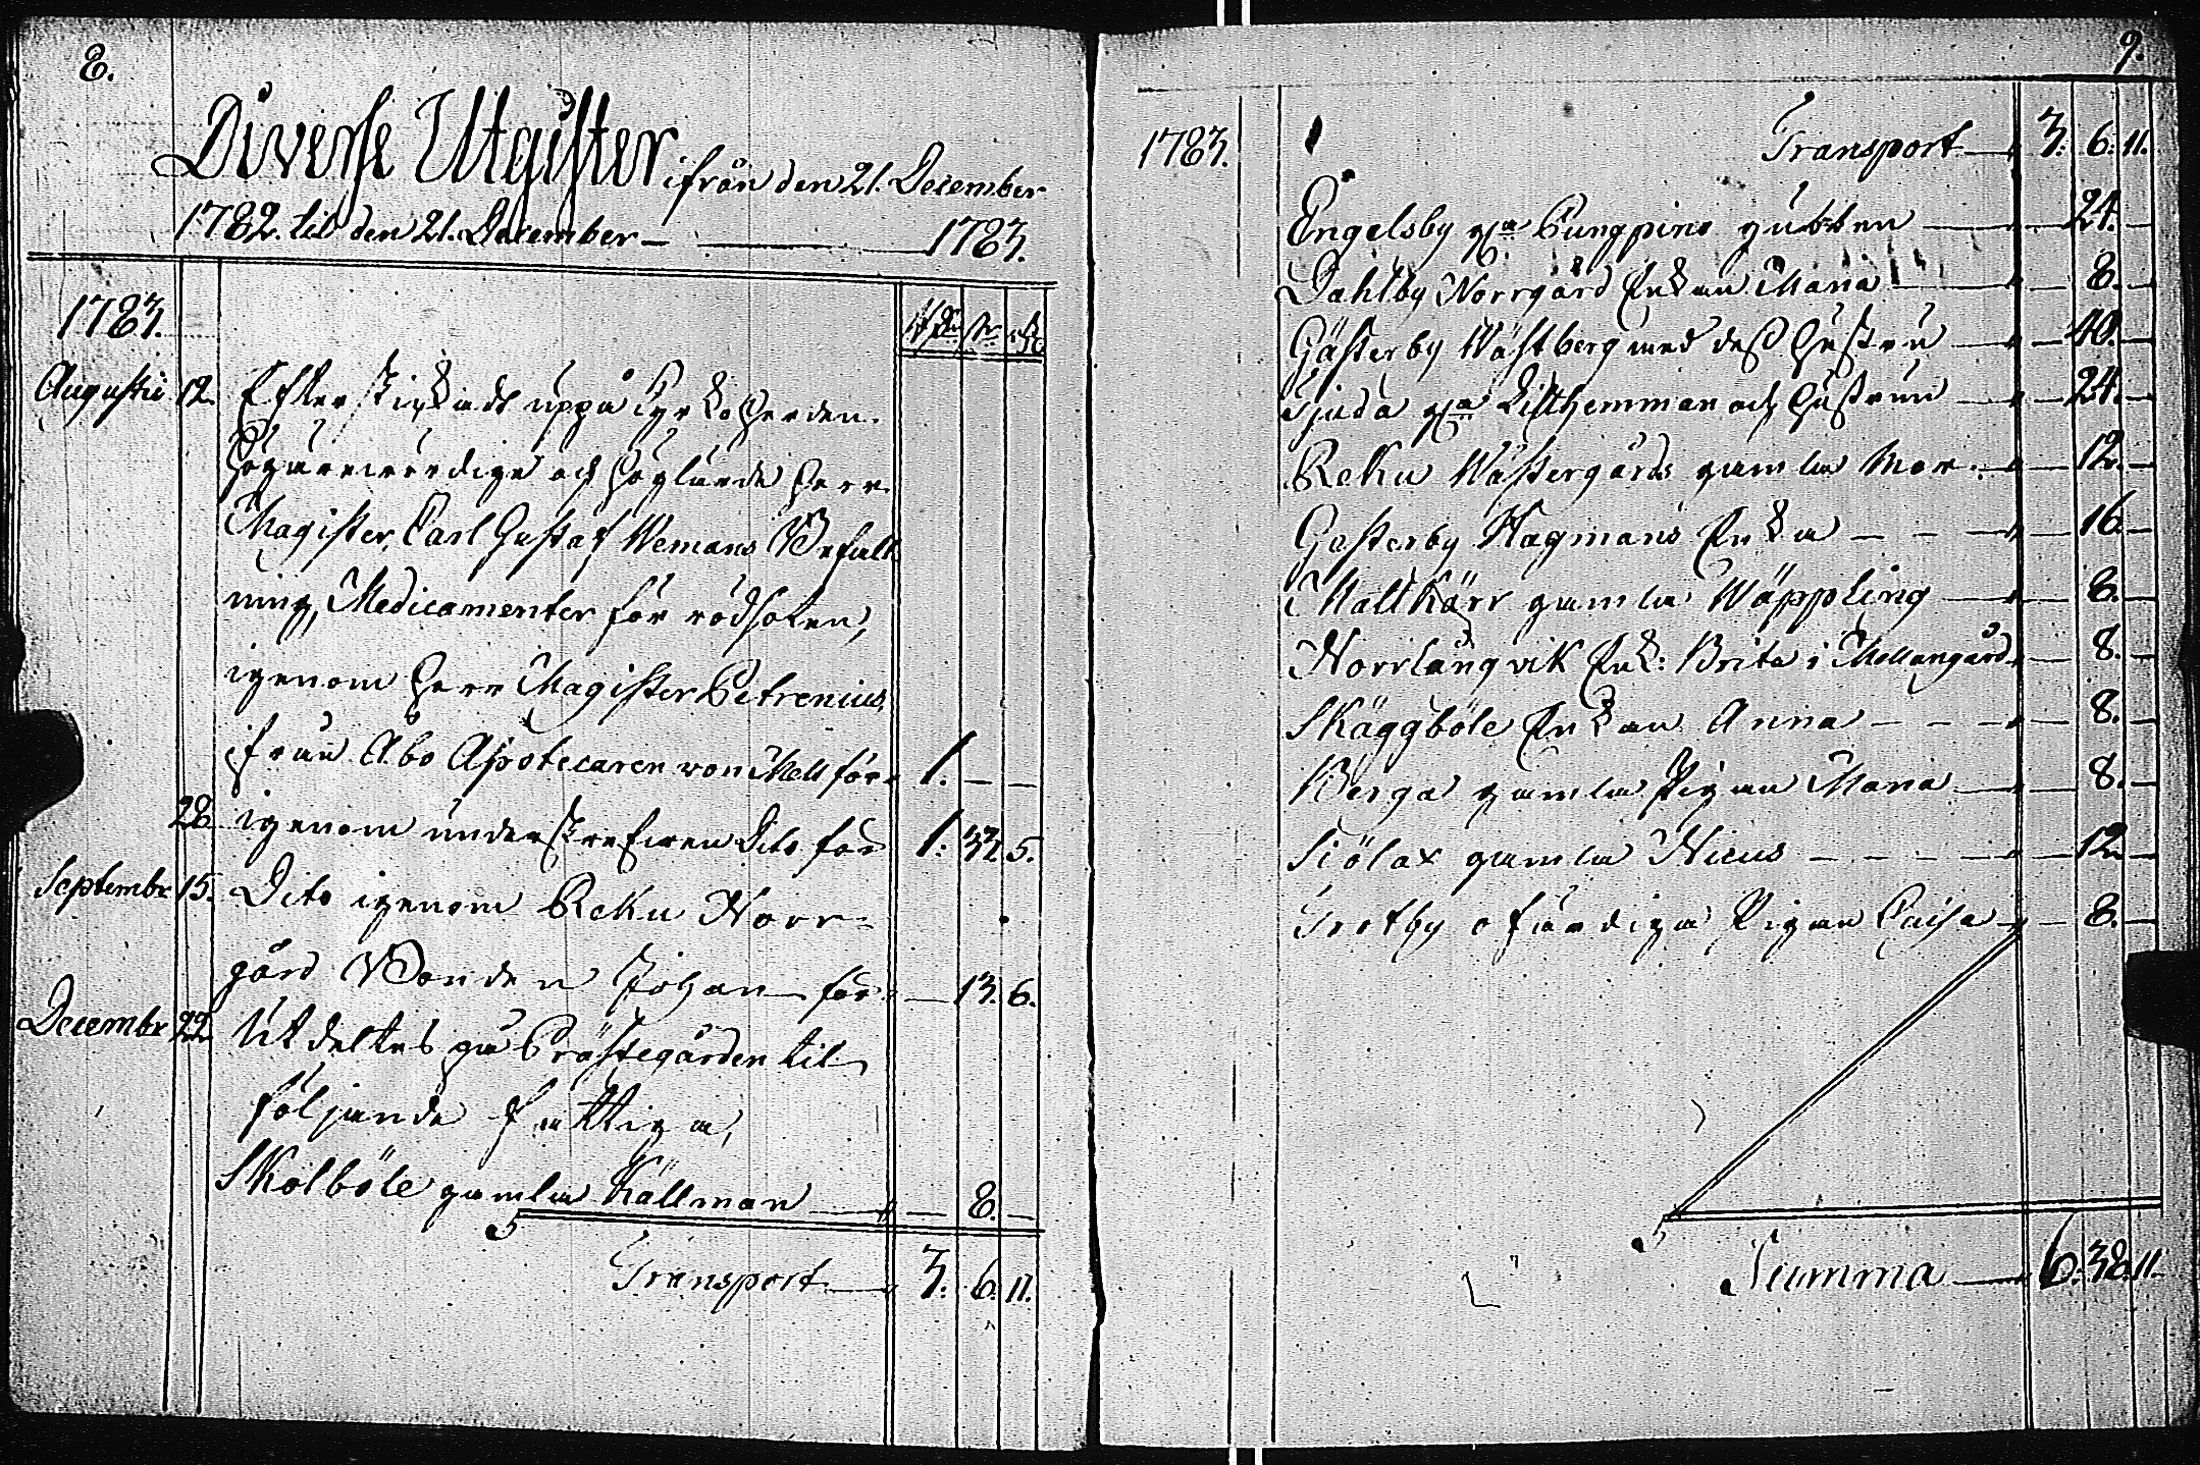 8.
Diverse Utgifter ifrån den 21. December
1782. til den 21. December — 1783.
1783.
Augustii 12. Efterskickade uppå Kyrkoherden
Högärewördige och Höglärde Herr
Magister Carl Gustaf Wemans Befall
ning, Medicamenter för rödsoten,
igenom Herr Magister Petrenius,
ifrån Åbo Apotecaren von Mell för 1. — —
28. igenom underskrefwen Dito för 1. 33. 5.
Septembr 15. Dito igenom Reku Norr-
gård Bonden Johan för — 13. 6.
Decembr 22. Utdeltes på Prästegården til
följande fattiga,
Skolböle gamla Källman — 8. —
Transport 3. 6. 11.
9.
1783. Transport 3. 6. 11.
Engelsby Pungpins gubben — 24. —
Dahlby Norrgård Enkan Maria — 8. —
Gästerby Wästberg med dess Hustru — 40. —
Tjuda Lillhemman och Hustrun — 24. —
Reku Wästergårds gamla Mor — 12. —
Gästerby Hagmans Enka — 16. —
Maltkärr gamla Wäppling — 8. —
Norrlångvik Enk: Brita i Mellangård — 8. —
Skäggböle Enkan Anna — 8. —
Berga gamla Pigan Maria — 8. —
Siölax gamla Nicus — 12. —
Trotby ofärdiga Pigan Caisa — 8. —
Summa 6. 38. 11.